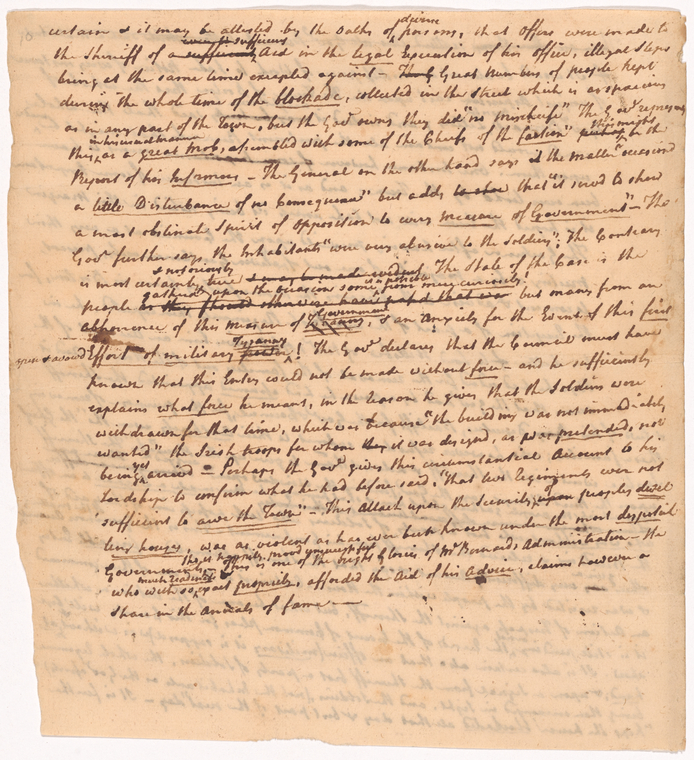 certain & it may be attested by the Oaths of diverse persons, that Offers were made to
the Sheriff of a even sufficient sufficient Aid in the legal Execution of his office, illegal Steps
being at the same time excepted against — Great Numbers of people kept
during the whole time of the blockade, collected in the Street which is as spacious
as in any part of the Town, but the Govr owns they did "no mischeife" The Govr represents
this, in his usual manner as a great mob, assembled with some of the Chiefs of the faction" this might be the
Report of his Informers — The General on the other hand says "the matter" occasiond
a little Disturbance of no Consequence" but adds that "it servd to show
a most obstinate Spirit of Opposition to every measure of Government" — The
Govr further says, the Inhabitants "were very abusive to the Soldiers"; The Contrary
is most certainly & notoriously true The State of the Case is the
people gatherd upon the occasion some as possible from mere curiosity, but many from an
abhorrence of this measure of Government Tyranny, & an Anxiety for the Event of this first
open & avowd Effort of military Tyranny power! The Govr declares that the Council must have
known that this Entry could not be made without force — and he sufficiently
explains what force he means, in the reason he gives that the Soldiers were
withdrawn for that time, which was because "the building was not immediately
wanted" the Irish troops for whom they it was designd, as was pretended, not
being yet arrivd — Perhaps the Govr gives this circumstantial Account to his
Lordship to confirm what he had before said, "That two regiments were not
sufficient to awe the Town" — This Attack upon the Security upon peoples dwel
ling houses, was as violent as has ever been known under the most despotick
Governments, This is one of the bright Glories of Mr Bernards Administration — the
who with so much readiness & propriety, afforded the Aid of his Advice, claims however a
share in the Annals of fame —